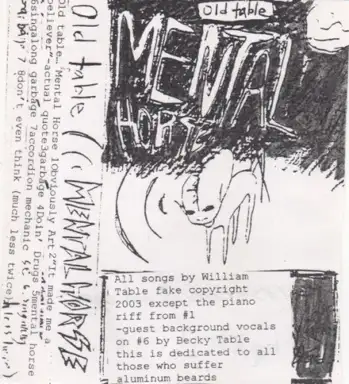 Old table
MENTAL
HORSE
All songs by William
Table fake copyright
2003 except the piano
riff from #1
-guest background vocals
on #6 by Becky Table
this is dedicated to all
those who suffer
aluminum beards
Old table ((MENTAL HORSE
Old table... Mental Horse 1Obviously Art 2"It made me a
believer"-actual quote3garbage 4Doin' Drugs 5mental horse
6singalong garbage 7accordion mechanic
8don't even think (much less twice)